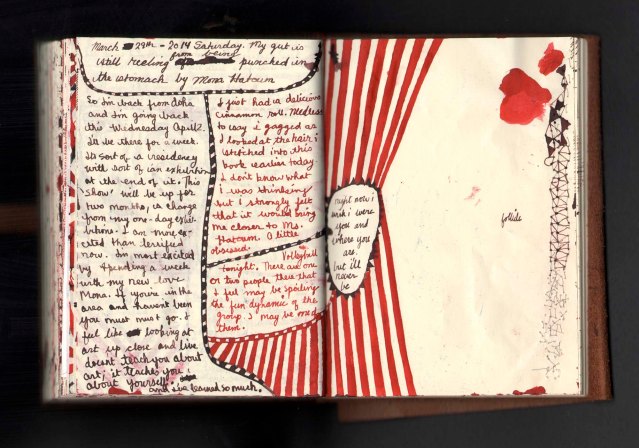 March 29th - 2014 Saturday. My gut is
still reeling from being punched in
the stomach by Mona Hatoum
So I'm back from Doha
and I'm going back
this Wednesday April 2.
I'll be there for a week.
It's sort of a residency
with sort of an exhibition
at the end of it. This
'show' will be up for
two months, a change
from my one-day exhib-
itions. I am more ex-
cited than terrified
now. I'm most excited
by spending a week
with my new love
Mona. If you're in the
area and haven't been
you must must go. I
feel like looking at
art up close and live
doesn't teach you about
art, it teaches you
about yourself.
and I've learned so much.
I just had a delicious
cinnamon roll. Needless
to say i gagged as
I looked at the hair i
stitched into this
book earlier today.
I don't know what
i was thinking
but i strongly felt
that it would bring
me closer to Ms.
Hatoum. A little
obsessed.
Volleyball
tonight. There are one
or two people there that
I feel may be spoiling
the fun dynamic of the
group. I may be one of
them.
right now i
wish i were
you and
where you
are.
but i'll
never
be
collide